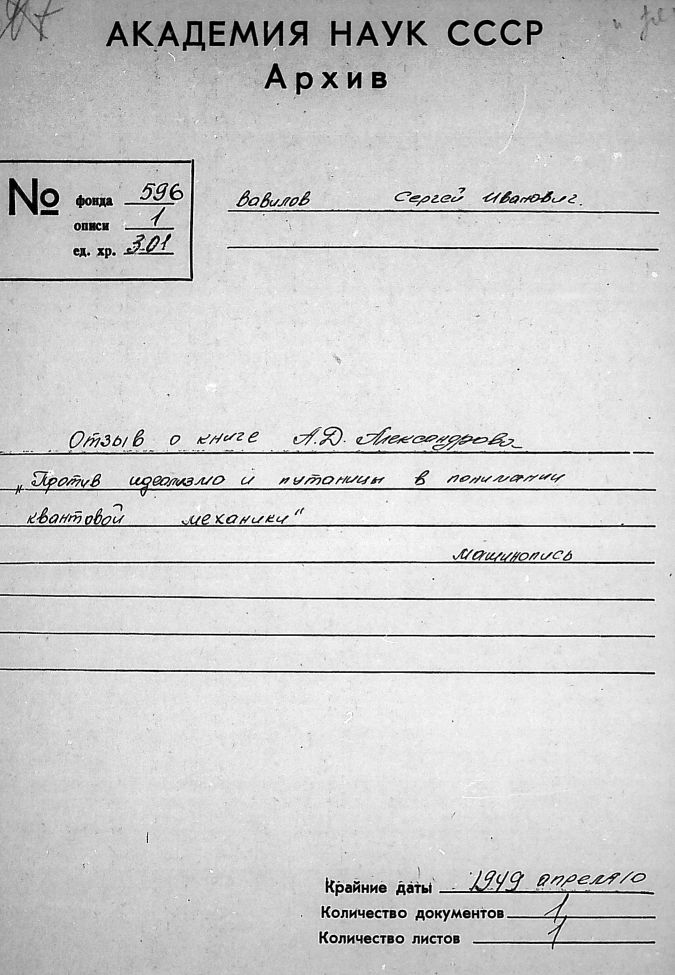 АКАДЕМИЯ НАУК СССР
Архив
№ фонда 596
описи 1
ед. хр. 301
Вавилов Сергей Иванович.
Отзыв о книге А.Д. Александрова
„Против идеализма и путаницы в понимании
квантовой механики"
машинопись
Крайние даты 1949 апреля 10
Количество документов 1
Количество листов 1